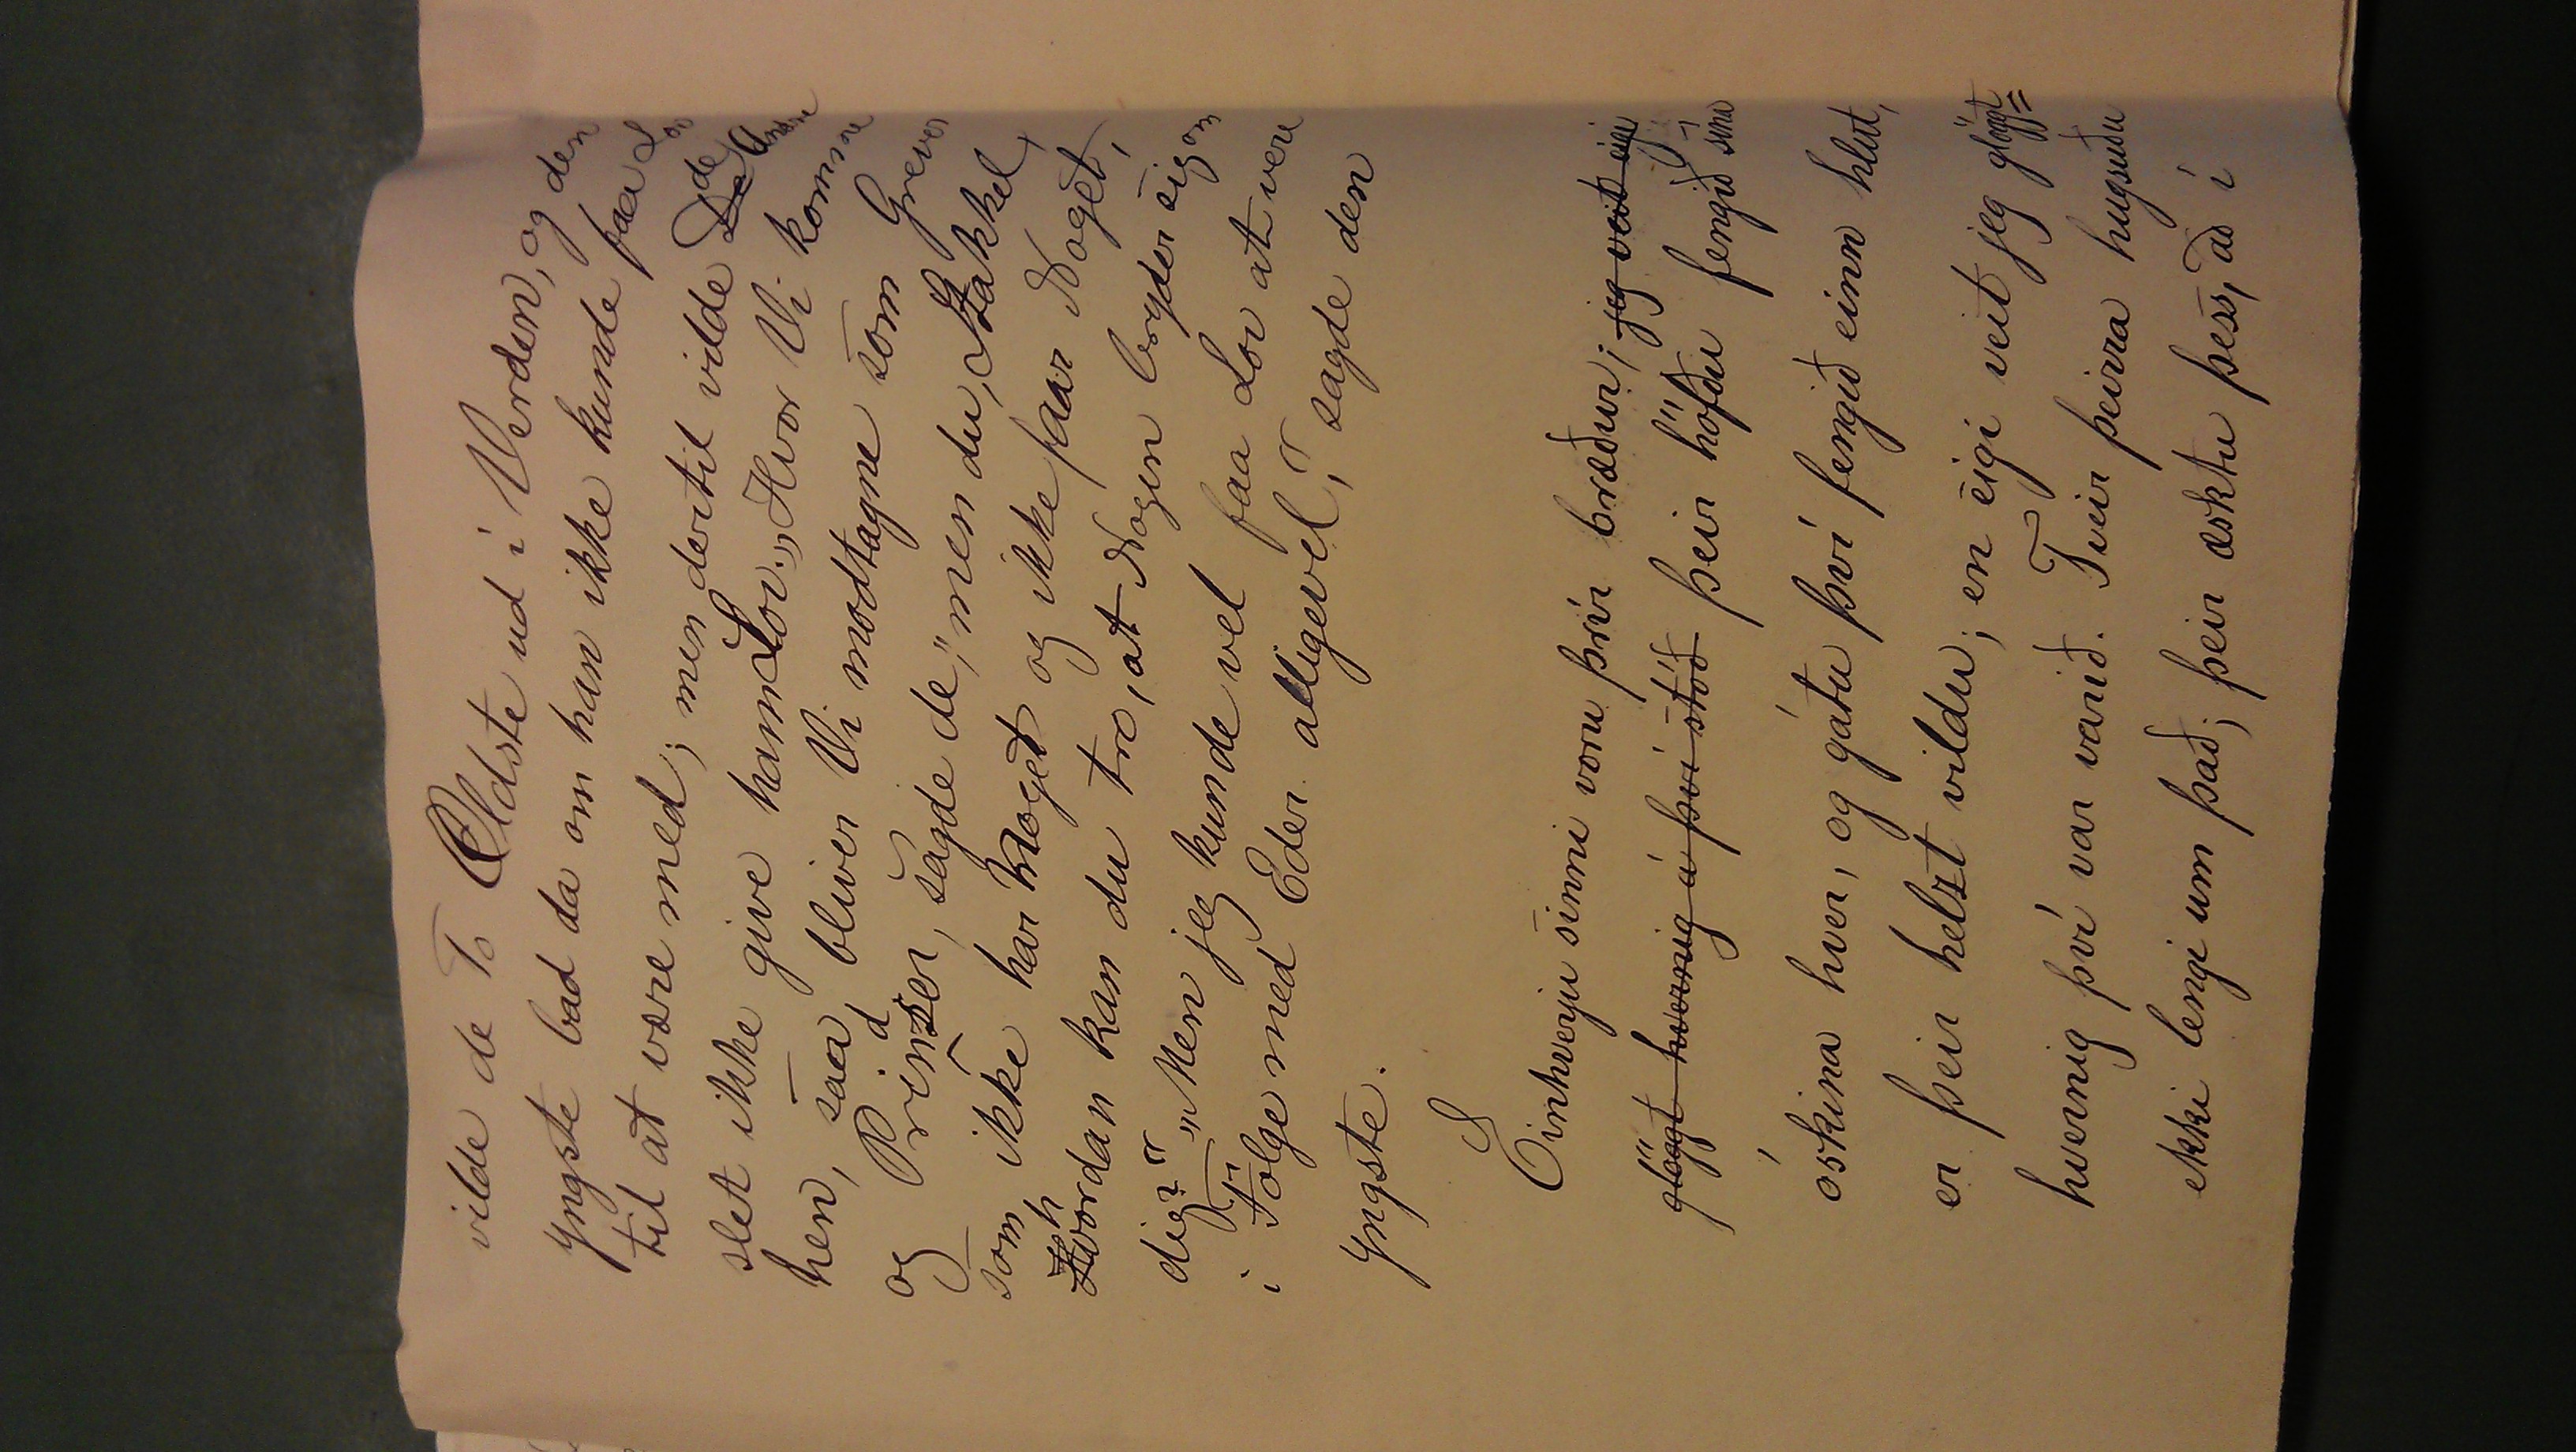 vilde de To Ældste ud i Verden, og den
yngste bad da om han ikke kunde faa Lov
til at være med; men dertil vilde De de Andre
slet ikke give ham Lov. „Hvor Vi komme
hen, saa bliver Vi modtagne som Grever
og Prindser, sagde de,” men du, Stakkel,
som ikke har Noget og ikke faar Noget,
hvordan kan du tro, at Nogen bryder sig om
dig?” „Men jeg kunde vel faa Lov at være
i Følge med Eder alligevel,” sagde den
yngste.
Einhverju sinni voru þrír bræður; jeg veit eigi
glöggt hvernig á því stóð þeir höfðu fengið sína
óskina hver, og gátu því fengið einn hlut,
er þeir helzt vildu; en eigi veit jeg glöggt=
hvernig því var varið. Tveir þeirra hugsuðu
ekki lengi um það; þeir æsktu þess, að í